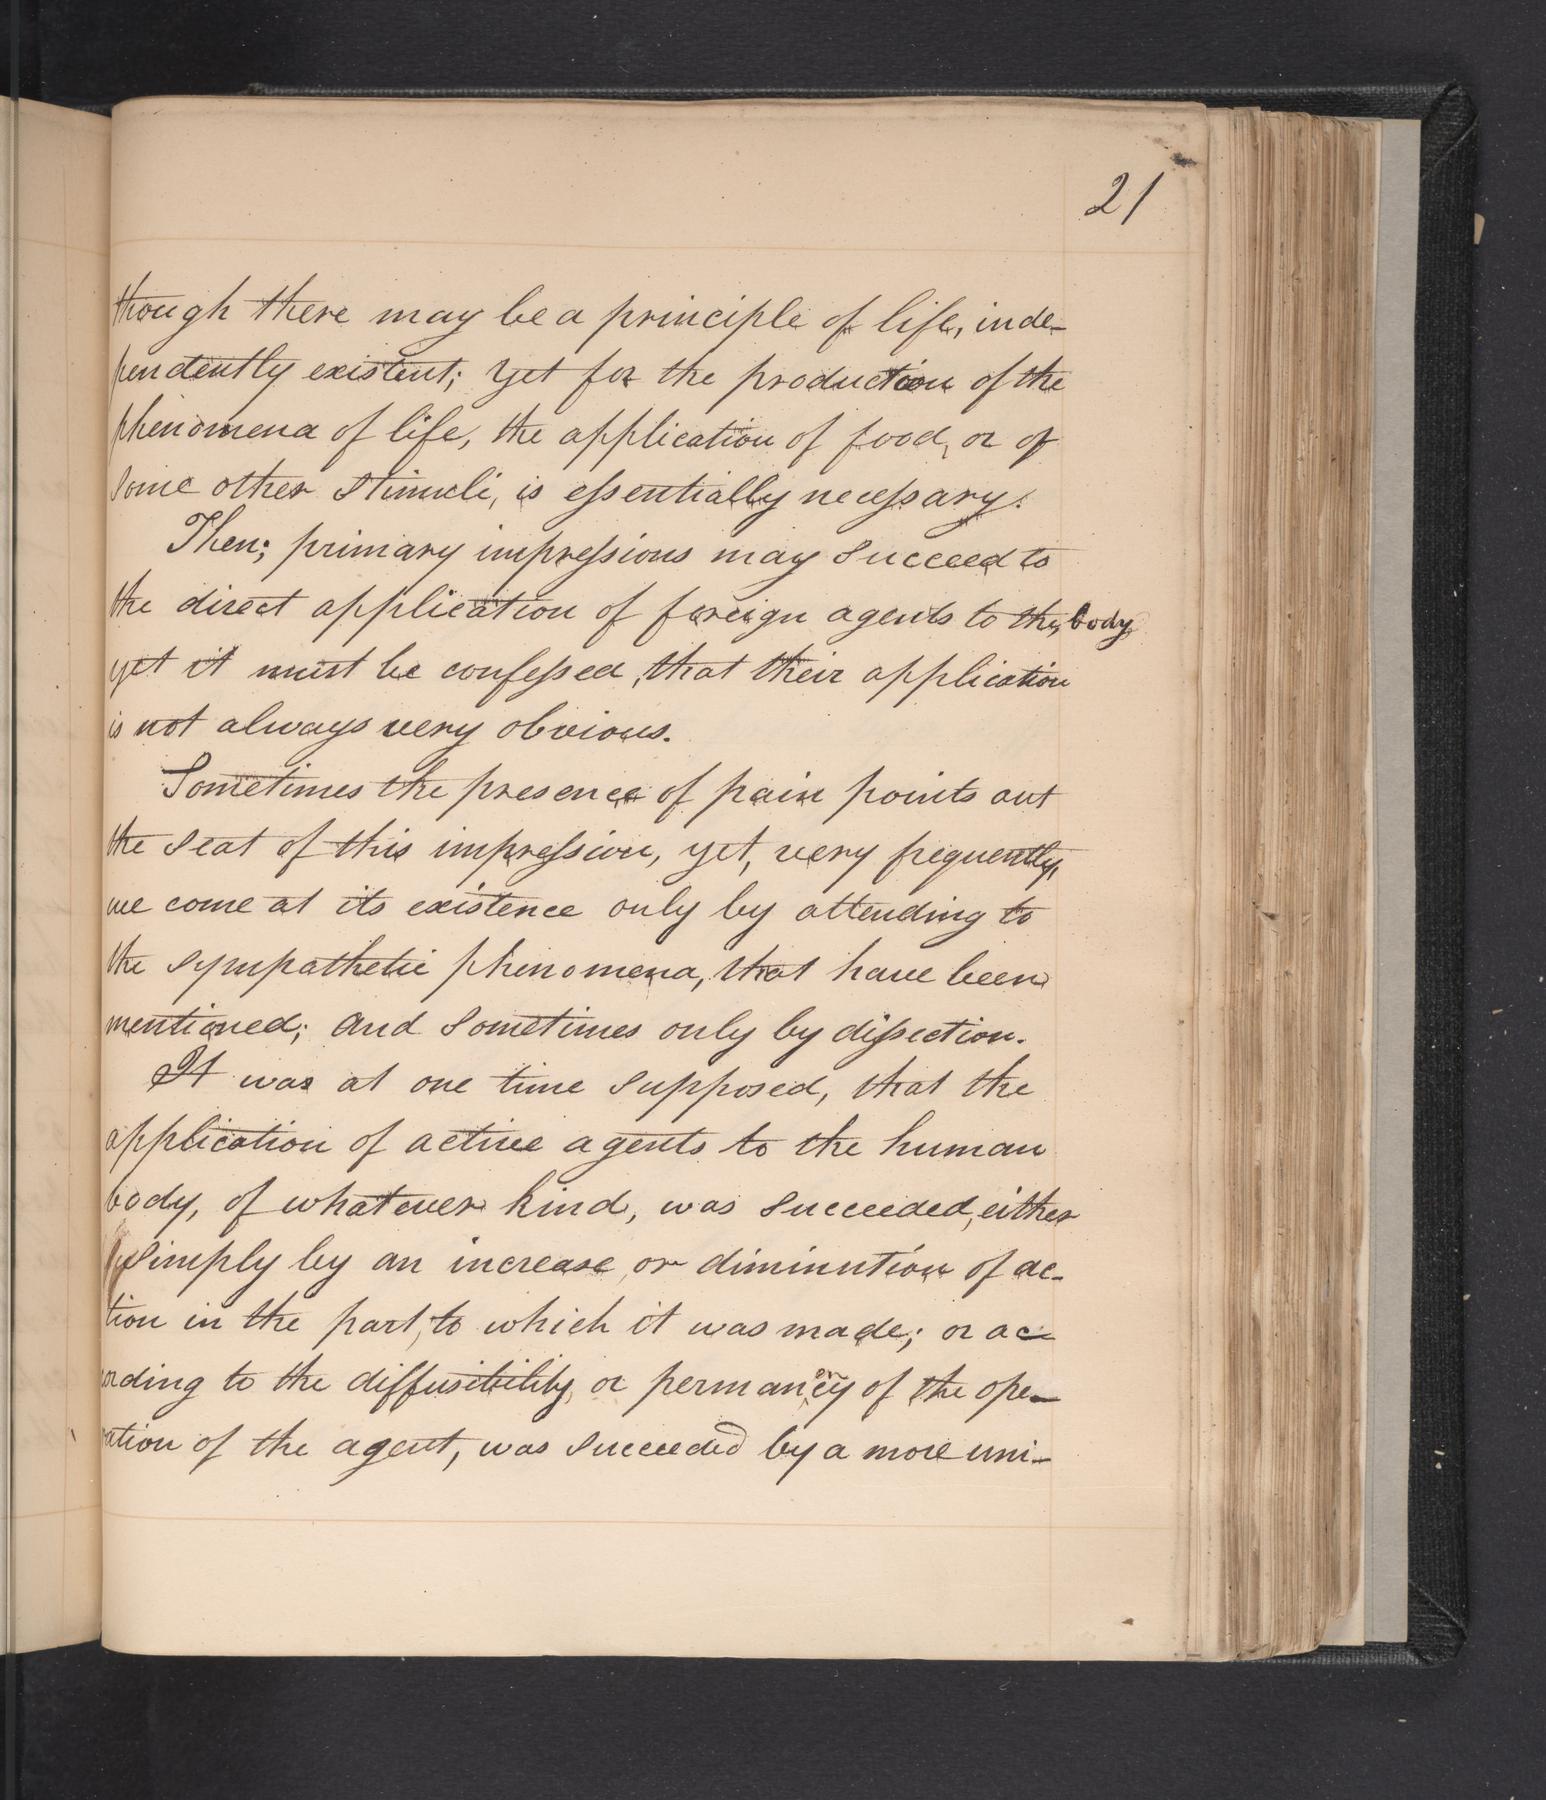 21
though there may be a principle of life, inde-
pendently existent; yet for the production of the
phenomena of life, the application of food, or of
some other stimuli, is essentially necessary.
Then; primary impressions may succeed to
the direct application of foreign agents to the body,
yet it must be confessed, that their application
is not always very obvious.
Sometimes the presence of pain points out
the seat of this impression, yet, very frequently,
we come at its existence only by attending to
the sympathetic phenomena, that have been
mentioned; and sometimes only by dissection.
It was at one time supposed, that the
application of active agents to the human
body, of whatever kind, was succeeded, either
simply by an increase, or diminution of ac-
tion in the part, to which it was made; or ac-
ording to the diffusibility, or permanency of the ope-
ration of the agent, was succeeded by a more uni-